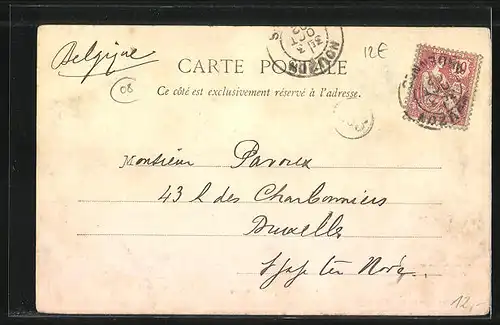 Belgique
12€
CARTE POSTALE
08
Ce côté est exclusivement réservé à l'adresse.
MOUZON
10
MOUZON
Monsieur
43 des Charbonniers
Bruxelles
12,-